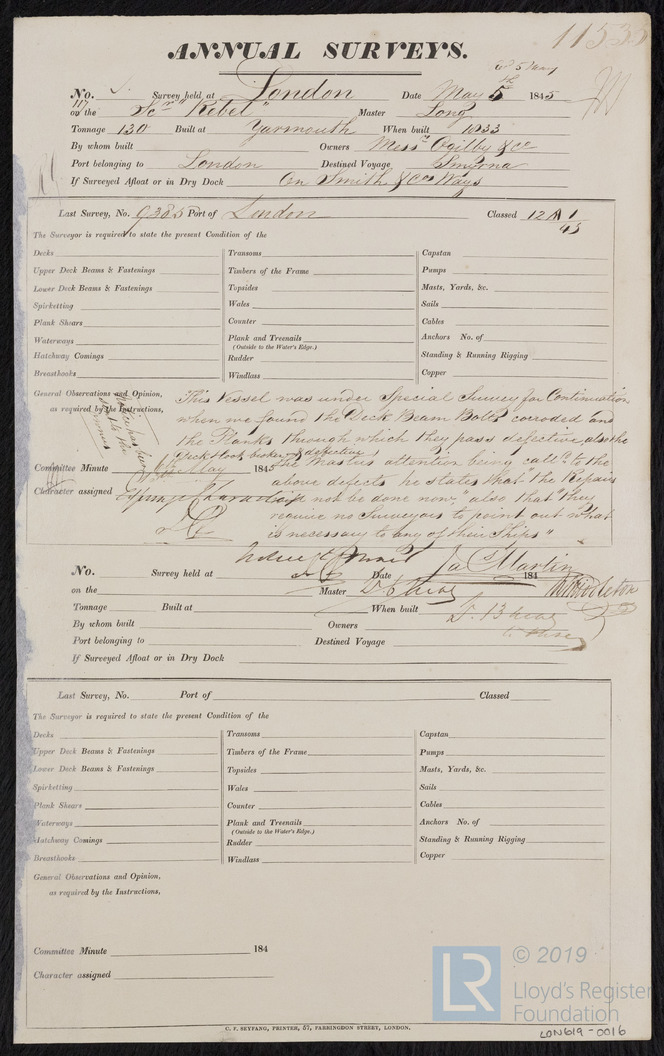 11533
ANNUAL SURVEYS.
No. Survey held at London Date May 5th 1845
on the Scr "Rebel" Master Long
Tonnage 130 Built at Yarmouth When built 1833
By whom built Owners Messrs Ogilby & Co
Port belonging to London Destined Voyage Smyrna
If Surveyed Afloat or in Dry Dock On Smith & Cos Ways
Last Survey, No. 9385 Port of London Classed 12 A 1
45
The Surveyor is required to state the present Condition of the
Decks Transoms Capstan
Upper Deck Beams & Fastenings Timbers of the Frame Pumps
Lower Deck Beams & Fastenings Topsides Masts, Yards, &c.
Spirketting Wales Sails
Plank Shears Counter Cables
Waterways Plank and Treenails Anchors No. of
(Outside to the Water's Edge.)
Hatchway Comings Rudder Standing & Running Rigging
Breasthooks Windlass Copper
General Observations and Opinion, This Vessel was under Special Survey for Continuation
as required by the Instructions, when we found the Deck Beam Bolts corroded and
the Planks through which they pass defective, also the
Deck Hook broken & defective
Committee Minute May 1845 the Masters attention being calld to the
above defects he states that the Repairs
Character assigned not be done now, "also that they
require no Surveyors to point out what
is necessary to any of their Ships"
No. Survey held at Date 184 Jas Martin
on the Master
Tonnage Built at When built
By whom built Owners
Port belonging to Destined Voyage
If Surveyed Afloat or in Dry Dock
Last Survey, No. Port of Classed
The Surveyor is required to state the present Condition of the
Decks Transoms Capstan
Upper Deck Beams & Fastenings Timbers of the Frame Pumps
Lower Deck Beams & Fastenings Topsides Masts, Yards, &c.
Spirketting Wales Sails
Plank Shears Counter Cables
Waterways Plank and Treenails Anchors No. of
(Outside to the Water's Edge.)
Hatchway Comings Rudder Standing & Running Rigging
Breasthooks Windlass Copper
General Observations and Opinion,
as required by the Instructions,
Committee Minute 184
Character assigned
C. F. SEYFANG, PRINTER, 57, FARRINGDON STREET, LONDON.
LR © 2019
Lloyd's Register
Foundation
LON619-0016